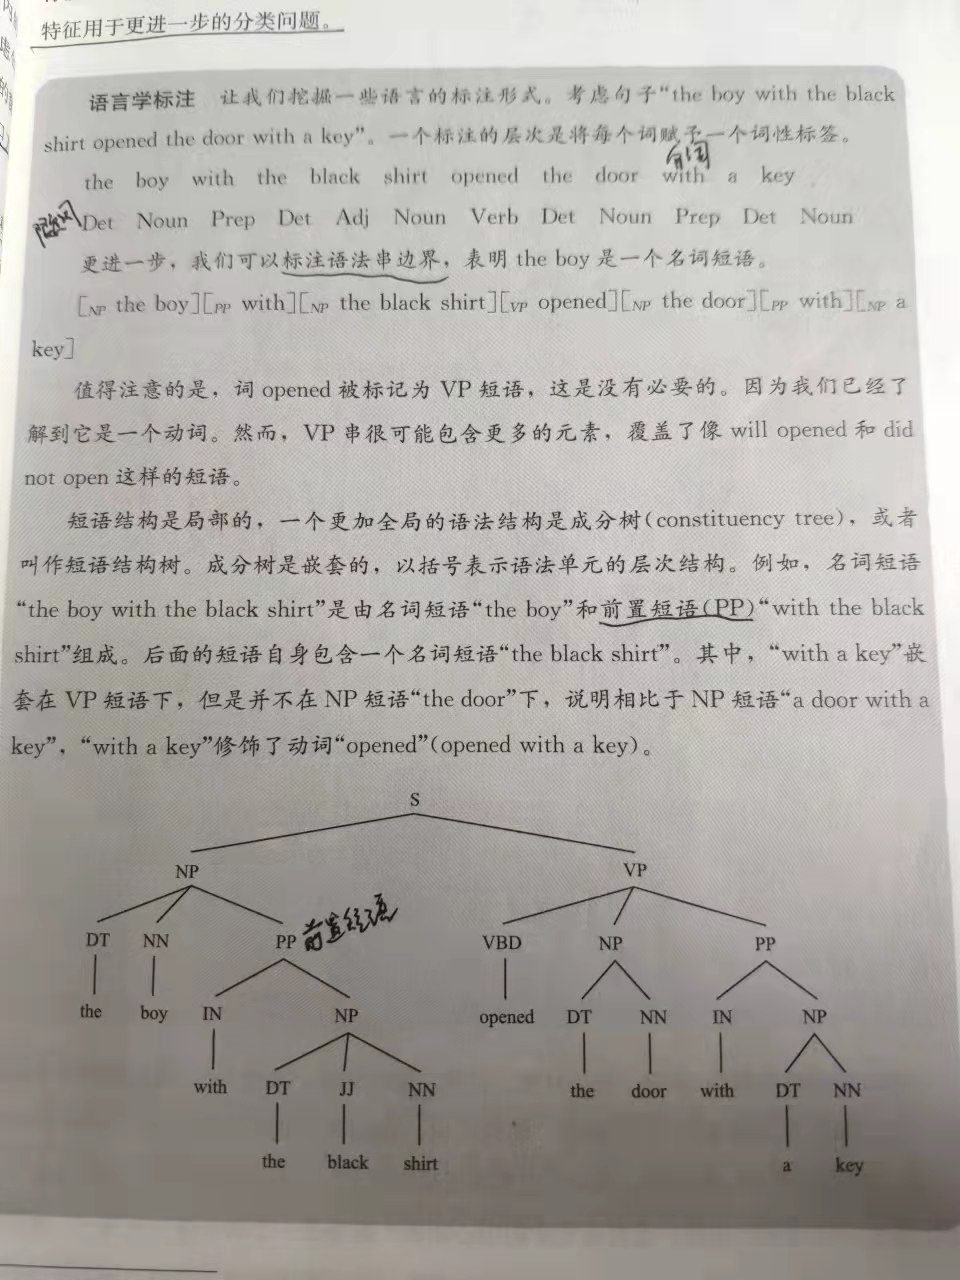 特征用于更进一步的分类问题。
语言学标注 让我们挖掘一些语言的标注形式。考虑句子“the boy with the black
shirt opened the door with a key”。一个标注的层次是将每个词赋予一个词性标签。
介词
the boy with the black shirt opened the door with a key
限定词
Det Noun Prep Det Adj Noun Verb Det Noun Prep Det Noun
更进一步，我们可以标注语法串边界，表明 the boy 是一个名词短语。
[NP the boy][PP with][NP the black shirt][VP opened][NP the door][PP with][NP a
key]
值得注意的是，词 opened 被标记为 VP 短语，这是没有必要的。因为我们已经了
解到它是一个动词。然而，VP 串很可能包含更多的元素，覆盖了像 will opened 和 did
not open 这样的短语。
短语结构是局部的，一个更加全局的语法结构是成分树(constituency tree)，或者
叫作短语结构树。成分树是嵌套的，以括号表示语法单元的层次结构。例如，名词短语
“the boy with the black shirt”是由名词短语“the boy”和前置短语(PP)“with the black
shirt”组成。后面的短语自身包含一个名词短语“the black shirt”。其中，“with a key”嵌
套在 VP 短语下，但是并不在 NP 短语“the door”下，说明相比于 NP 短语“a door with a
key”，“with a key”修饰了动词“opened”(opened with a key)。
S
NP VP
DT NN PP 前置短语 VBD NP PP
the boy IN NP opened DT NN IN NP
with DT JJ NN the door with DT NN
the black shirt a key